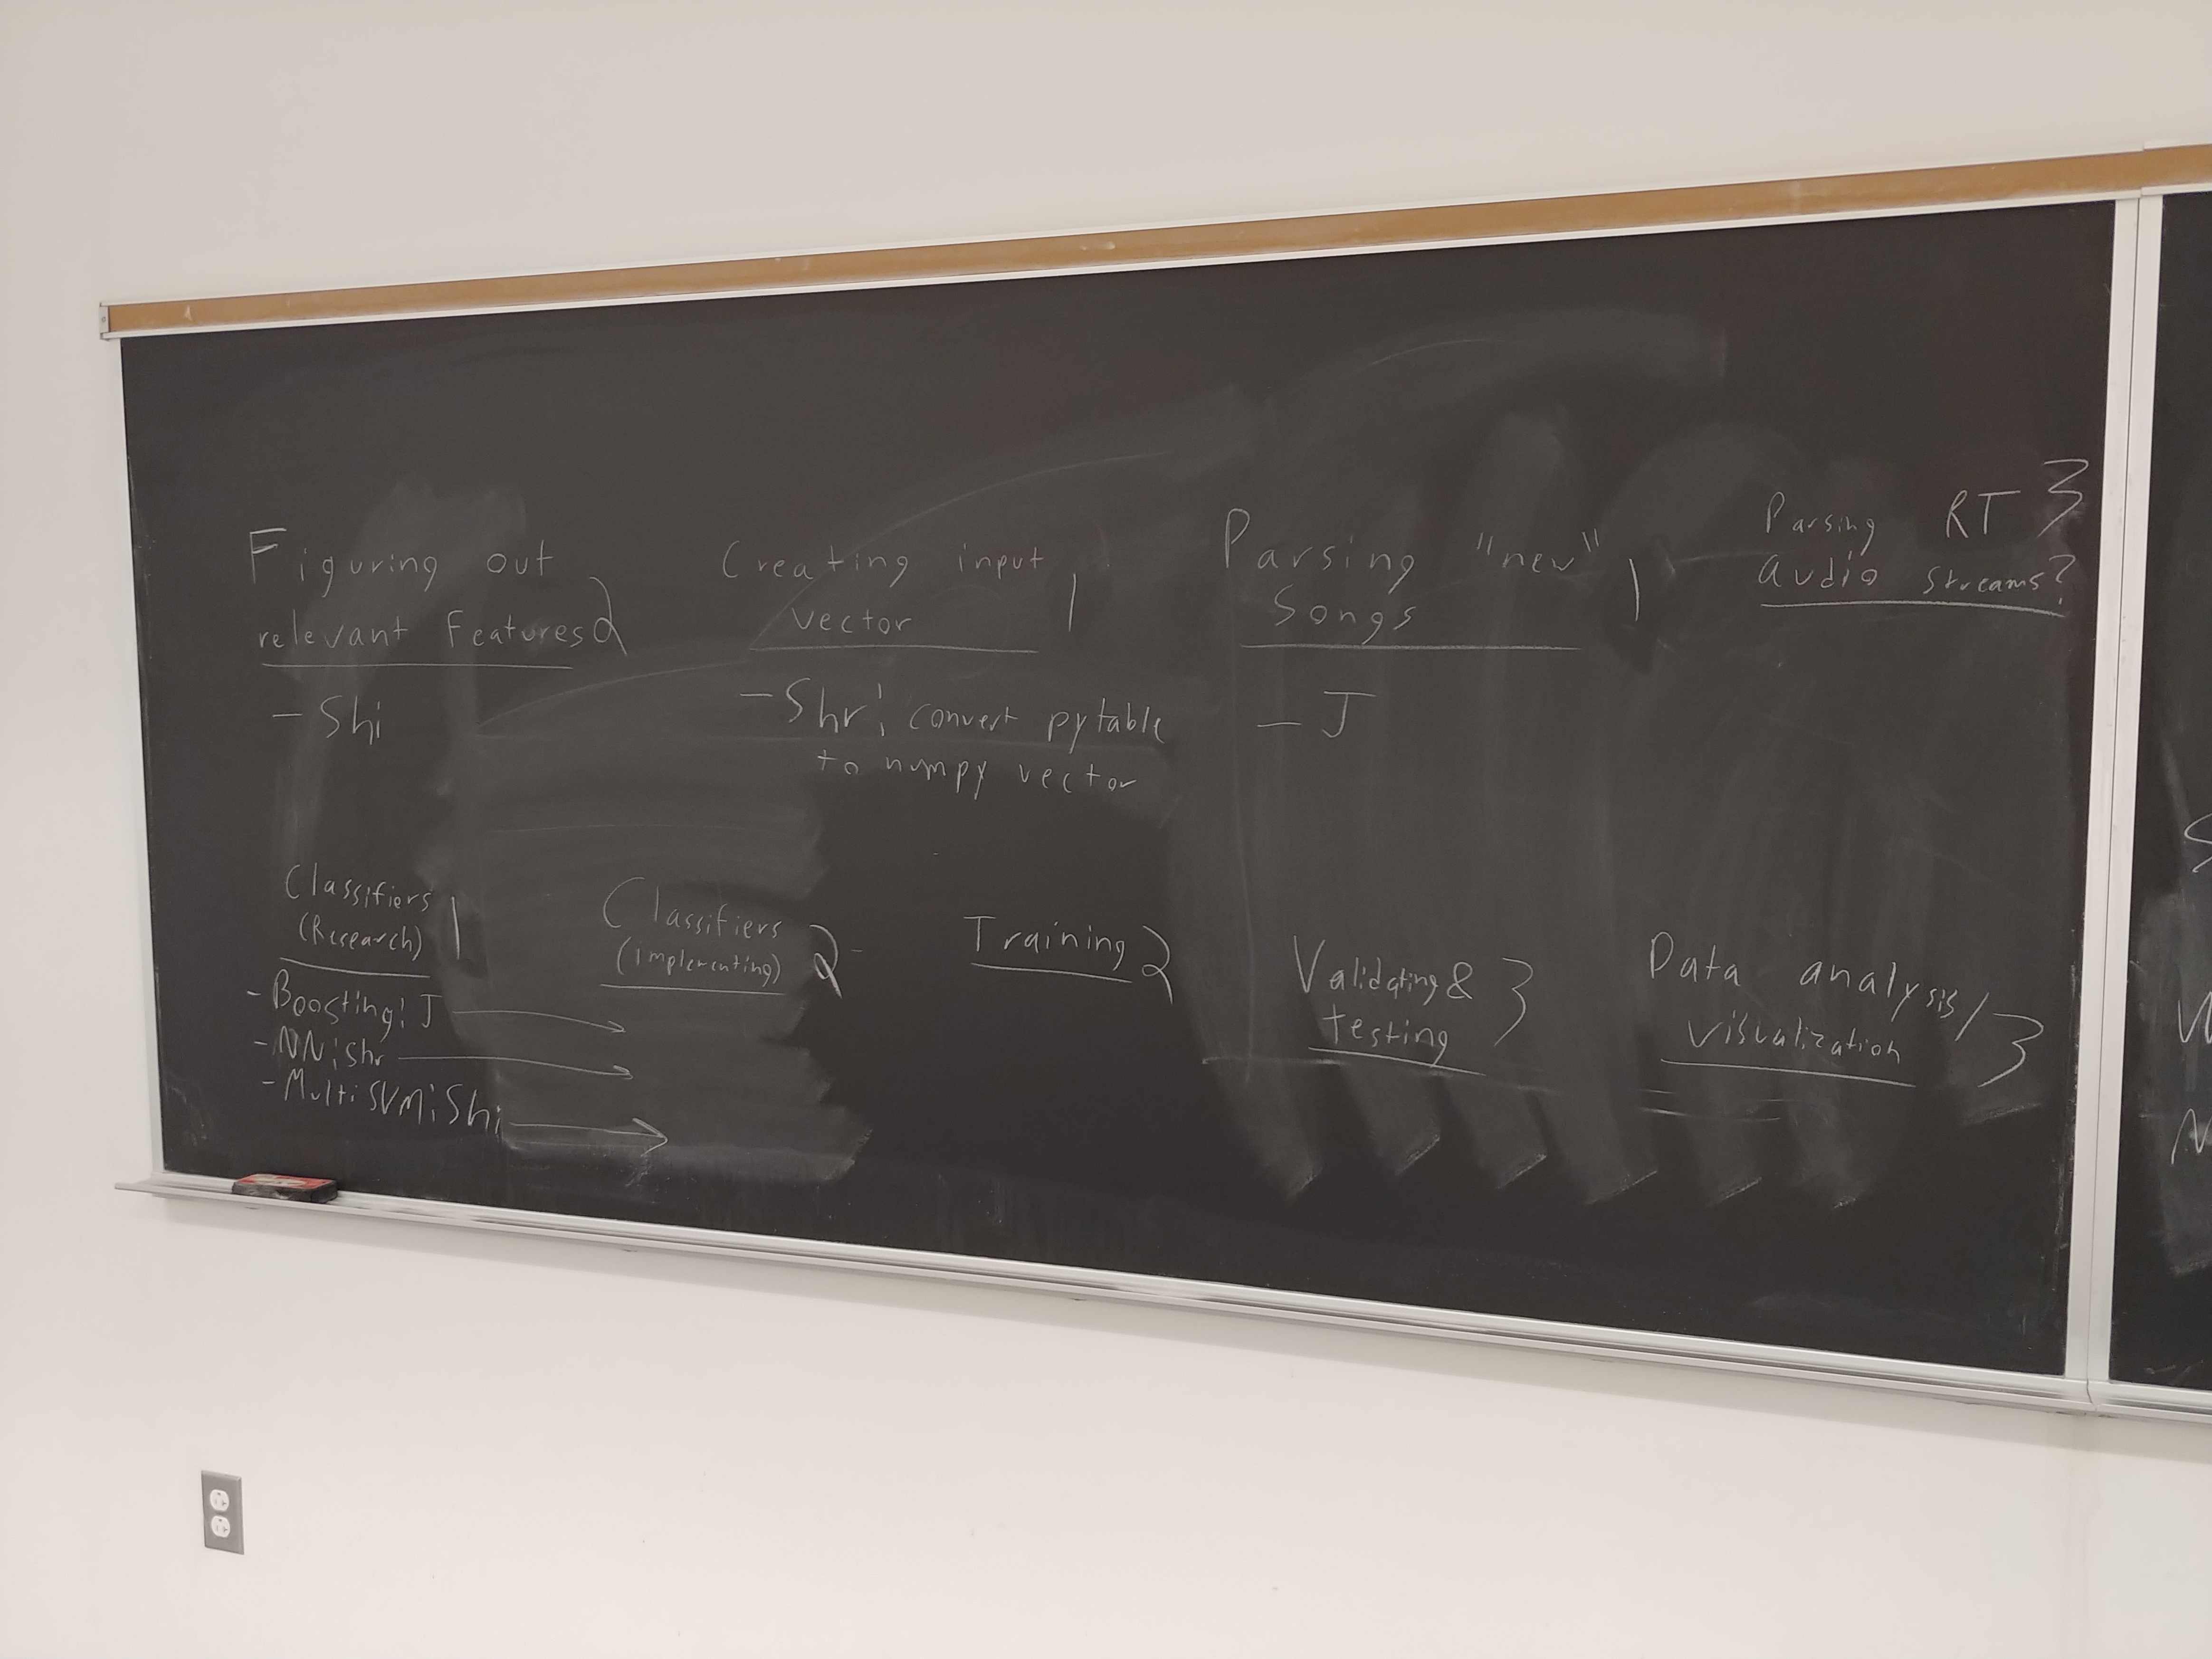 Figuring out
relevant features 2
- Shi
Creating input
vector 1
- Shr: convert pytable
to numpy vector
Parsing "new"
Songs 1
- J
Parsing RT 3
audio streams?
Classifiers
(Research) 1
- Boosting: J
- NN: Shr
- Multi SVM: Shi
Classifiers
(implementing) 2
Training 2
Validating &
testing 3
Data analysis/
visualization 3